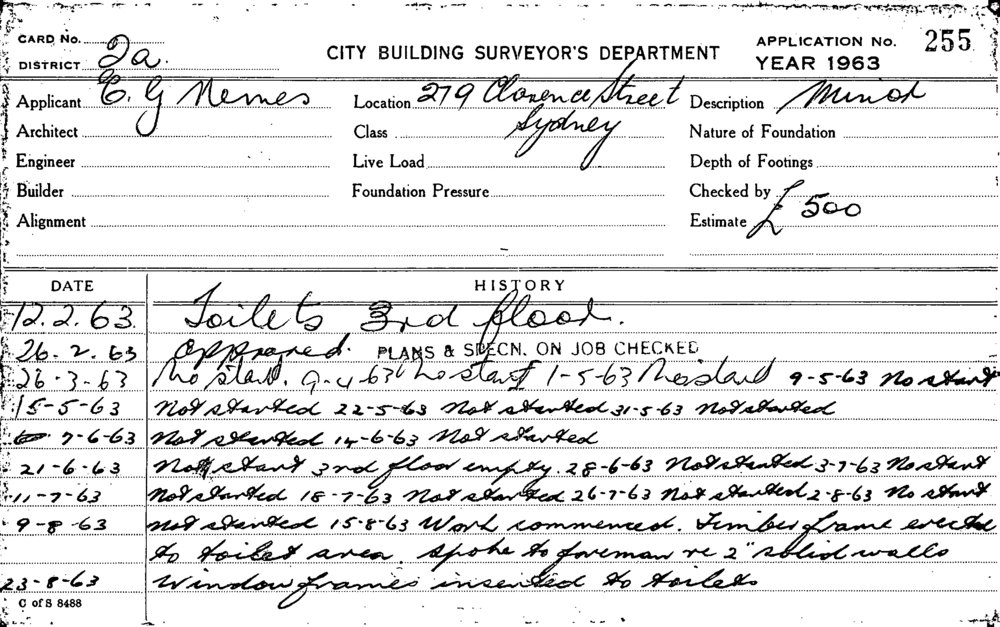 CARD No.
DISTRICT 2a.
CITY BUILDING SURVEYOR'S DEPARTMENT
APPLICATION No. 255
YEAR 1963
Applicant E. G Nemes
Location 279 Clarence Street
Sydney
Description Minor
Architect
Class
Nature of Foundation
Engineer
Live Load
Depth of Footings
Builder
Foundation Pressure
Checked by
Alignment
Estimate £ 500
DATE HISTORY
12.2.63. Toilets 3rd floor.
26.2.63 approved. PLANS & SPECN. ON JOB CHECKED
26-3-63 No start. 9-4-63 No start 1-5-63 No start 9-5-63 No start
15-5-63 Not started 22-5-63 Not started 31-5-63 Not started
7-6-63 Not started 14-6-63 Not started
21-6-63 Not start 3rd floor empty. 28-6-63 Not started 3-7-63 No start
11-7-63 Not started 18-7-63 Not started 26-7-63 Not started 2-8-63 No start
9-8-63 Not started 15-8-63 Work commenced. Timber frame erected
to toilet area. Spoke to foreman re 2" solid walls
23-8-63 Window frames inserted to toilets
C of S 8488